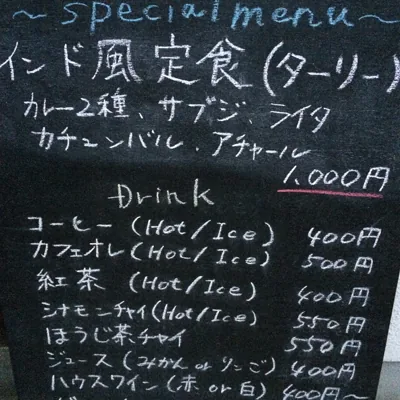 ～special menu～
インド風定食(ターリー)
カレー2種、サブジ、ライタ
カチュンバル、アチャール
1,000円
Drink
コーヒー (Hot/Ice) 400円
カフェオレ(Hot/Ice) 500円
紅茶 (Hot/Ice) 400円
シナモンチャイ(Hot/Ice) 550円
ほうじ茶チャイ 550円
ジュース (みかん or りンご) 400円
ハウスワイン (赤 or 白) 400円～